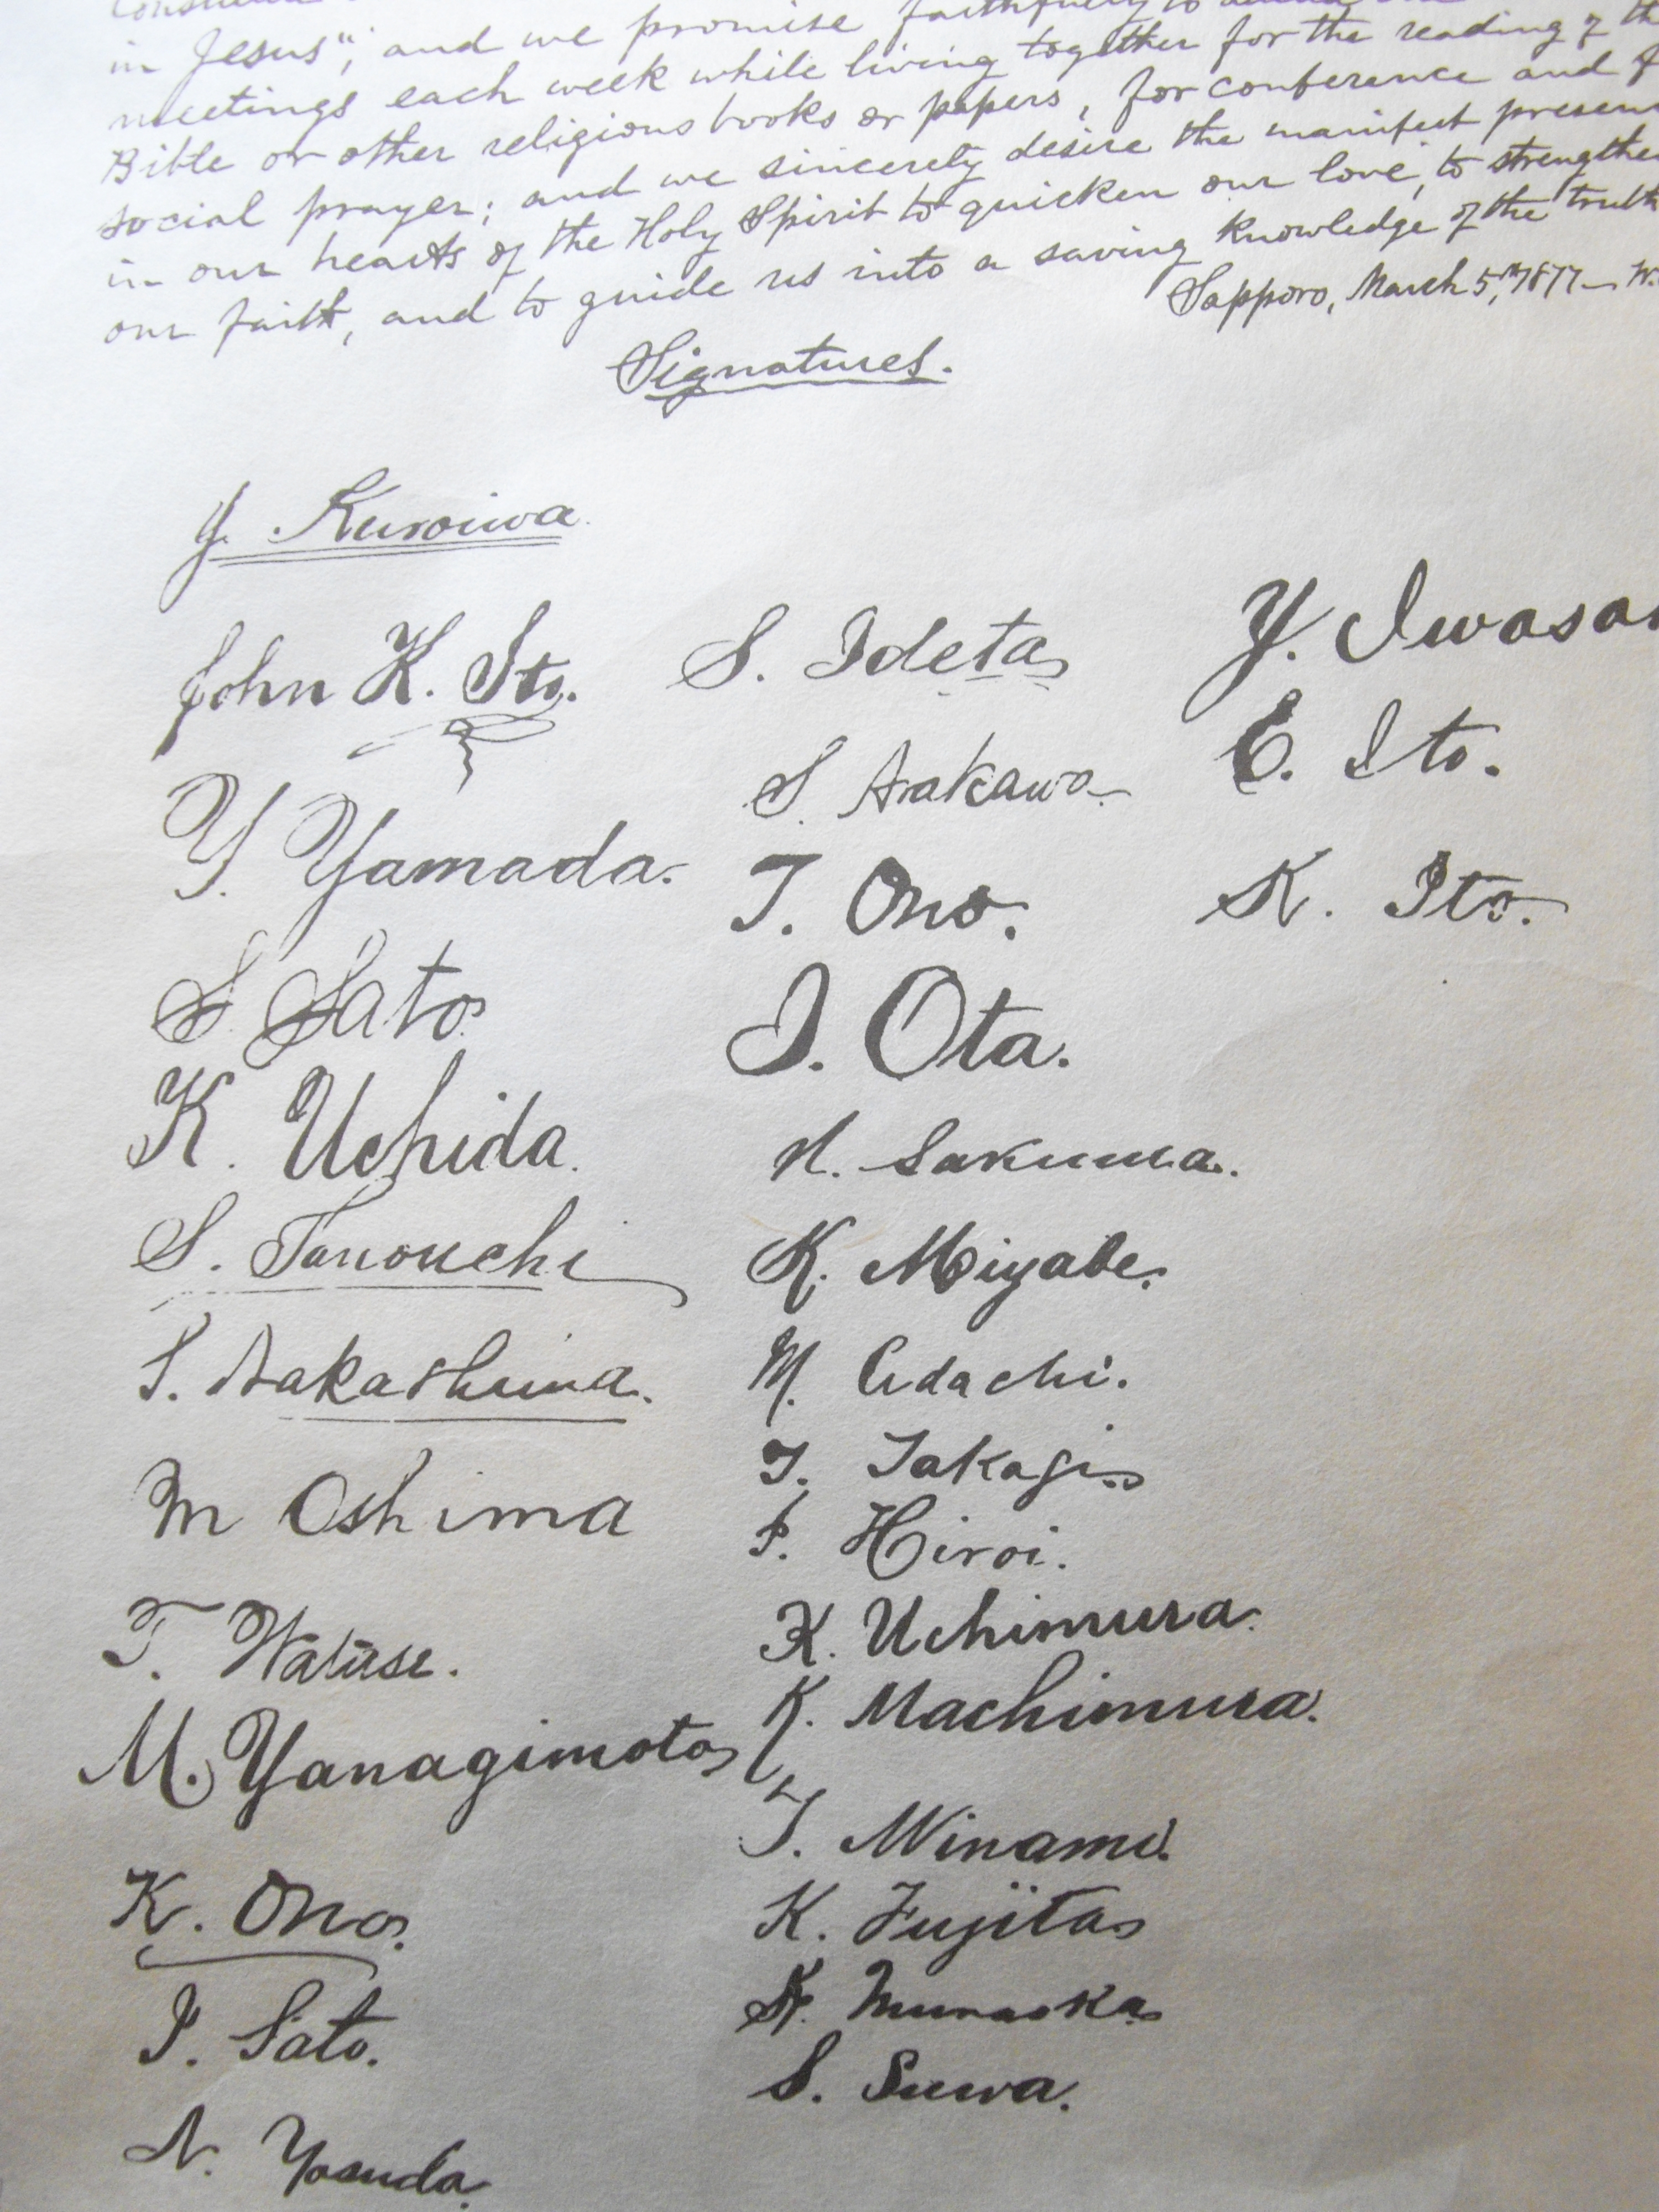 in Jesus"; and we promise faithfully to
meetings each week while living together for the reading of the
Bible or other religious books or papers, for conference and
social prayer; and we sincerely desire the manifest presen
in our hearts of the Holy Spirit to quicken our love, to strengthen
our faith, and to guide us into a saving knowledge of the truth
Sapporo, March 5,th 1877— W.
Signatures.
Y. Kuroiwa.
John K. Ito.
Y. Yamada.
S. Sato.
K. Uchida.
S. Tanouchi
S. Nakashima.
M Oshima
T. Watase.
M. Yanagimoto
K. Ono.
I. Sato.
N. Yasuda.
S. Ideta
S. Arakawa
T. Ono.
I. Ota.
N. Sakuma.
K. Miyabe.
M. Adachi.
T. Takagi.
I. Hiroi.
K. Uchimura.
K. Machimura.
T. Minami.
K. Fujita
K. Muraoka
S. Suwa.
Y. Iwasa
E. Ito.
K. Ito.